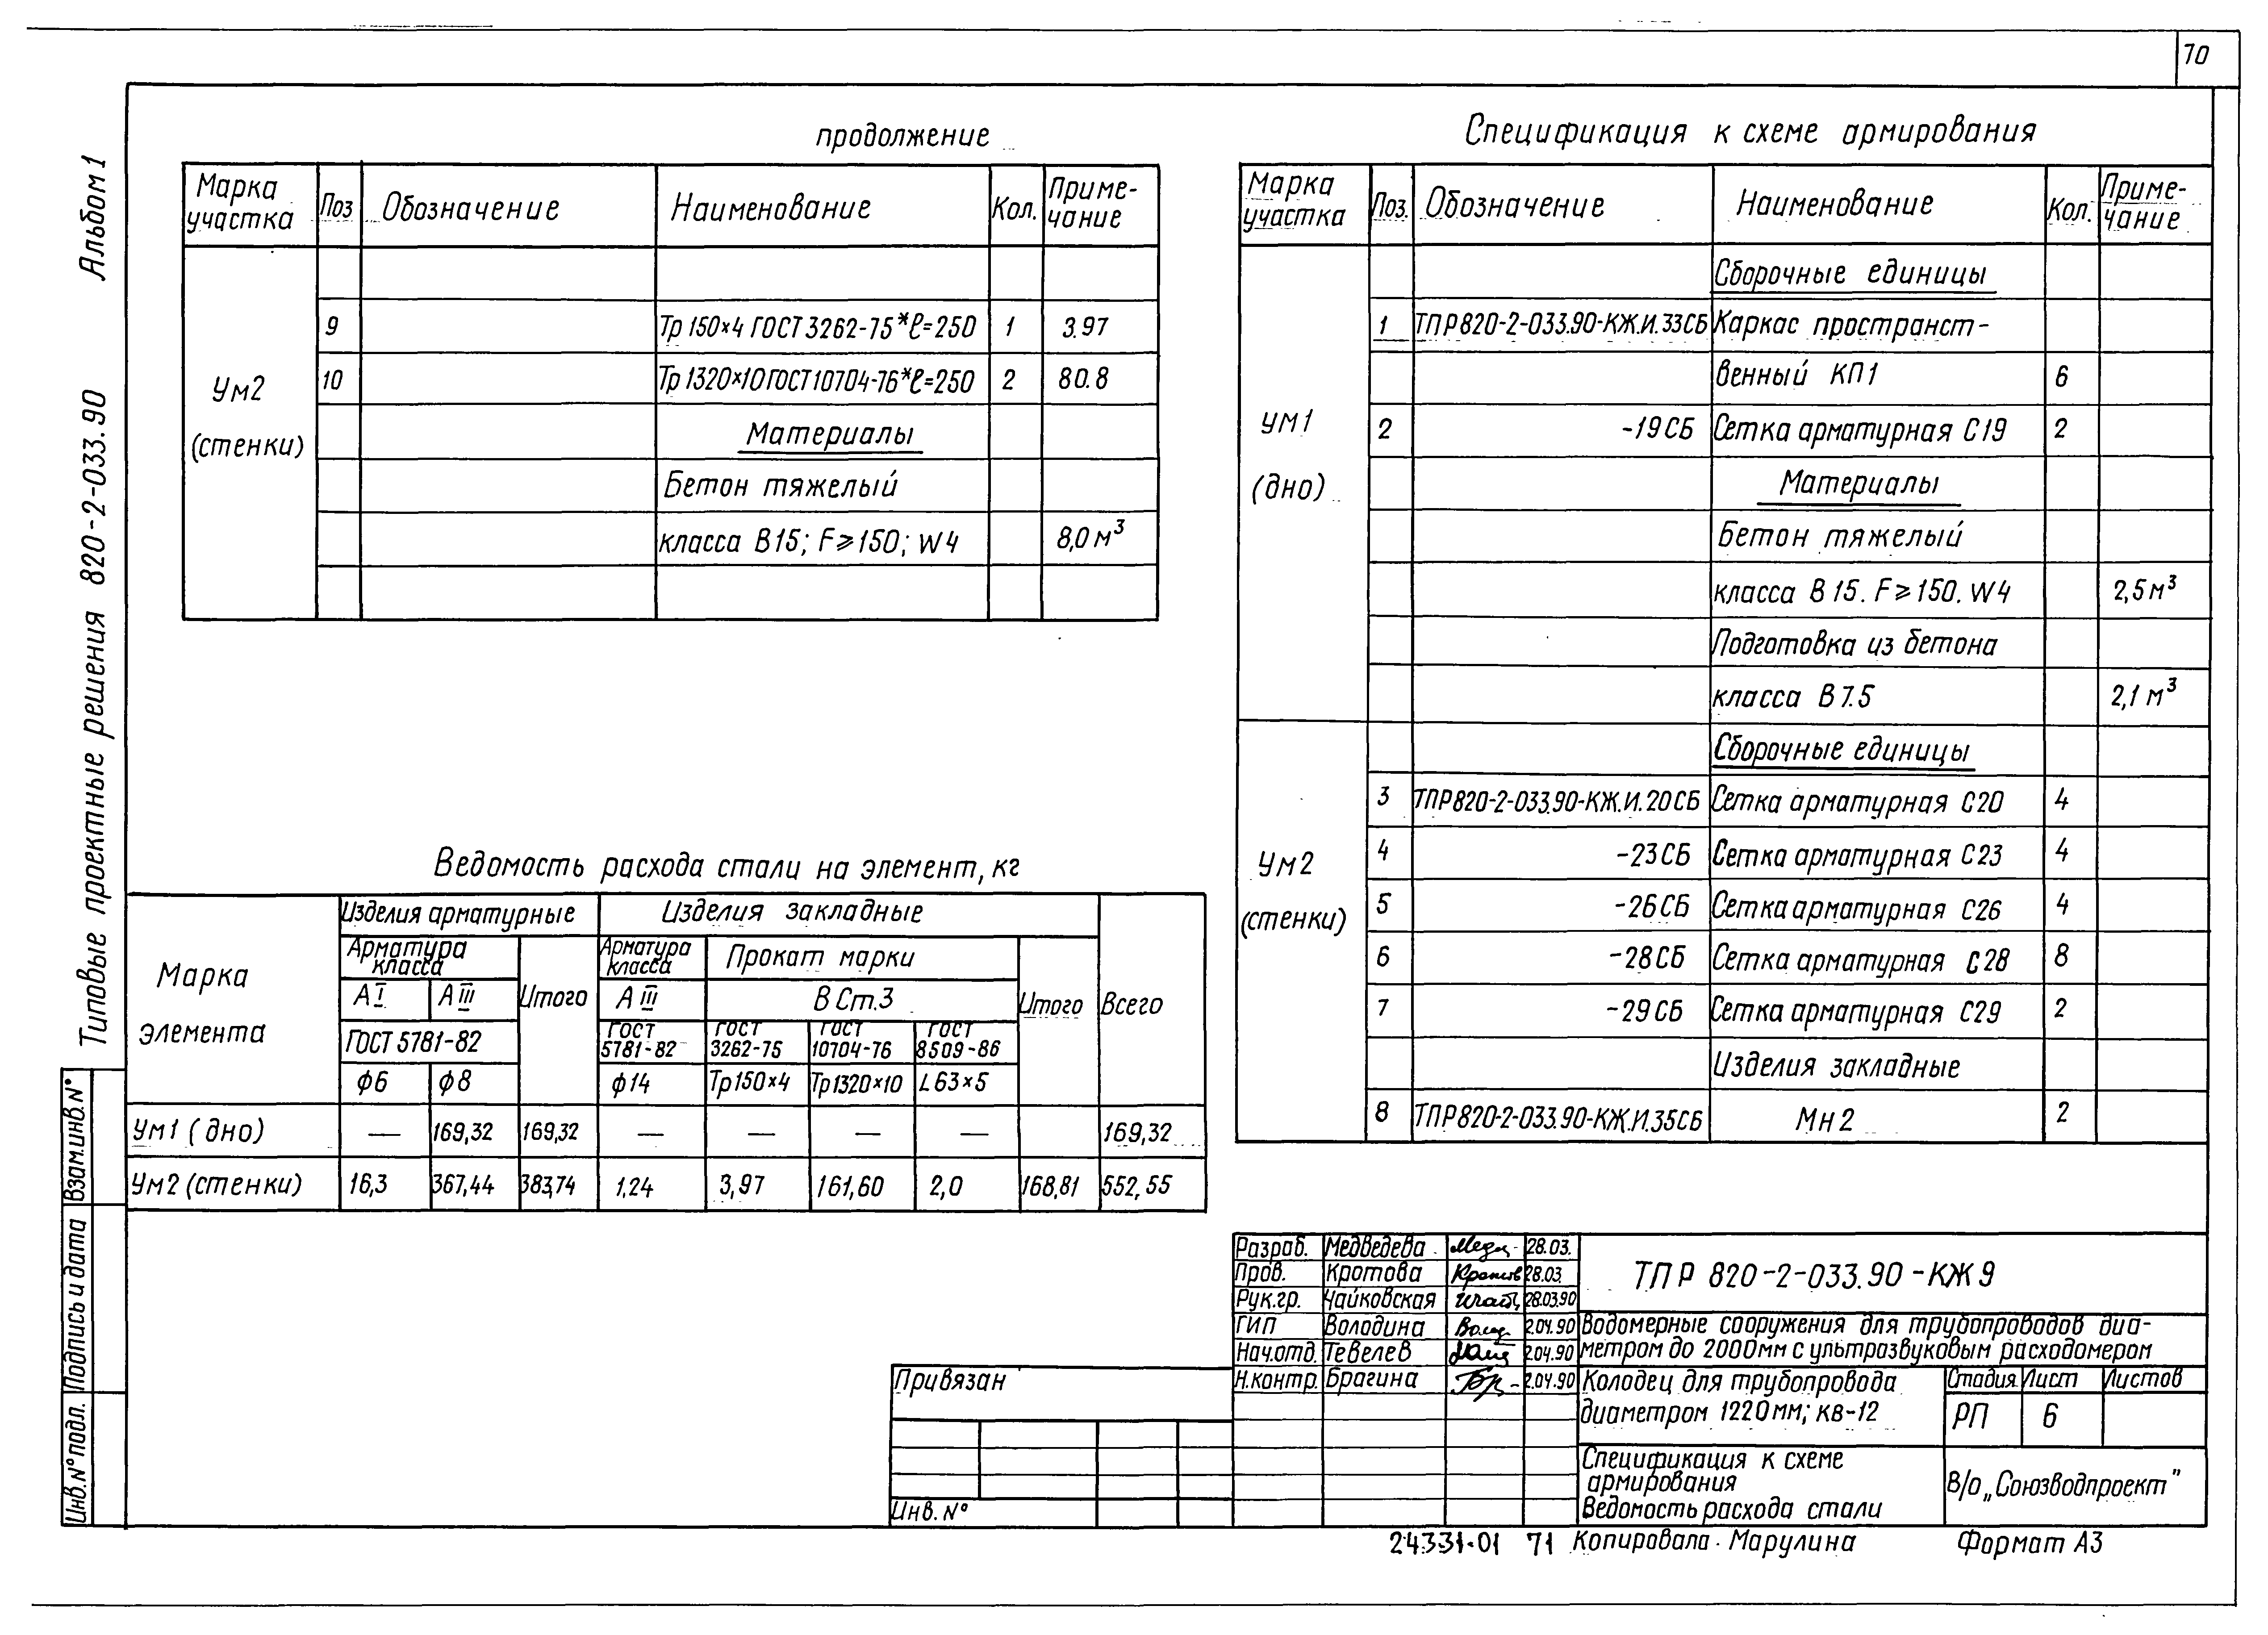 70
Альбом 1
Типовые проектные решения 820-2-033.90
продолжение
Марка участка Поз Обозначение Наименование Кол. Приме-чание
Ум2 (стенки)
9 Тр 150×4 ГОСТ 3262-75* ℓ=250 1 3.97
10 Тр 1320×10 ГОСТ 10704-76* ℓ=250 2 80.8
Материалы
Бетон тяжелый
класса В15; F⩾150; W4 8,0 м³
Спецификация к схеме армирования
Марка участка Поз. Обозначение Наименование Кол. Приме-чание
Ум1 (дно)
Сборочные единицы
1 ТПР820-2-033.90-КЖ.И.33СБ Каркас пространст-
венный КП1 6
2 -19СБ Сетка арматурная С19 2
Материалы
Бетон тяжелый
класса В 15. F⩾150. W4 2,5 м³
Подготовка из бетона
класса В 7.5 2,1 м³
Ум2 (стенки)
Сборочные единицы
3 ТПР820-2-033.90-КЖ.И.20СБ Сетка арматурная С20 4
4 -23СБ Сетка арматурная С23 4
5 -26СБ Сетка арматурная С26 4
6 -28СБ Сетка арматурная С28 8
7 -29СБ Сетка арматурная С29 2
Изделия закладные
8 ТПР820-2-033.90-КЖ.И.35СБ Мн2 2
Ведомость расхода стали на элемент, кг
Марка элемента
Изделия арматурные Изделия закладные
Арматура класса Итого Арматура класса Прокат марки Итого Всего
А I А III А III В Ст.3
ГОСТ 5781-82 ГОСТ 5781-82 ГОСТ 3262-75 ГОСТ 10704-76 ГОСТ 8509-86
ф6 ф8 ф14 Тр150×4 Тр1320×10 L63×5
Ум1 (дно) — 169,32 169,32 — — — — 169,32
Ум2 (стенки) 16,3 367,44 383,74 1,24 3,97 161,60 2,0 168,81 552,55
Взам.инв.N°
Подпись и дата
Инв.N° подл.
Привязан
Инв. N°
Разраб. Медведева 28.03.
Пров. Кротова 28.03.
Рук.гр. Чайковская 28.03.90
ГИП Володина 2.04.90
Нач.отд. Тевелев 2.04.90
Н.контр. Брагина 2.04.90
ТПР 820-2-033.90-КЖ9
Водомерные сооружения для трубопроводов диа-
метром до 2000мм с ультразвуковым расходомером
Колодец для трубопровода
диаметром 1220мм; кв-12
Стадия Лист Листов
РП 6
Спецификация к схеме
армирования
Ведомость расхода стали
В/о „Союзводпроект"
24331-01 71 Копировала Марулина Формат А3